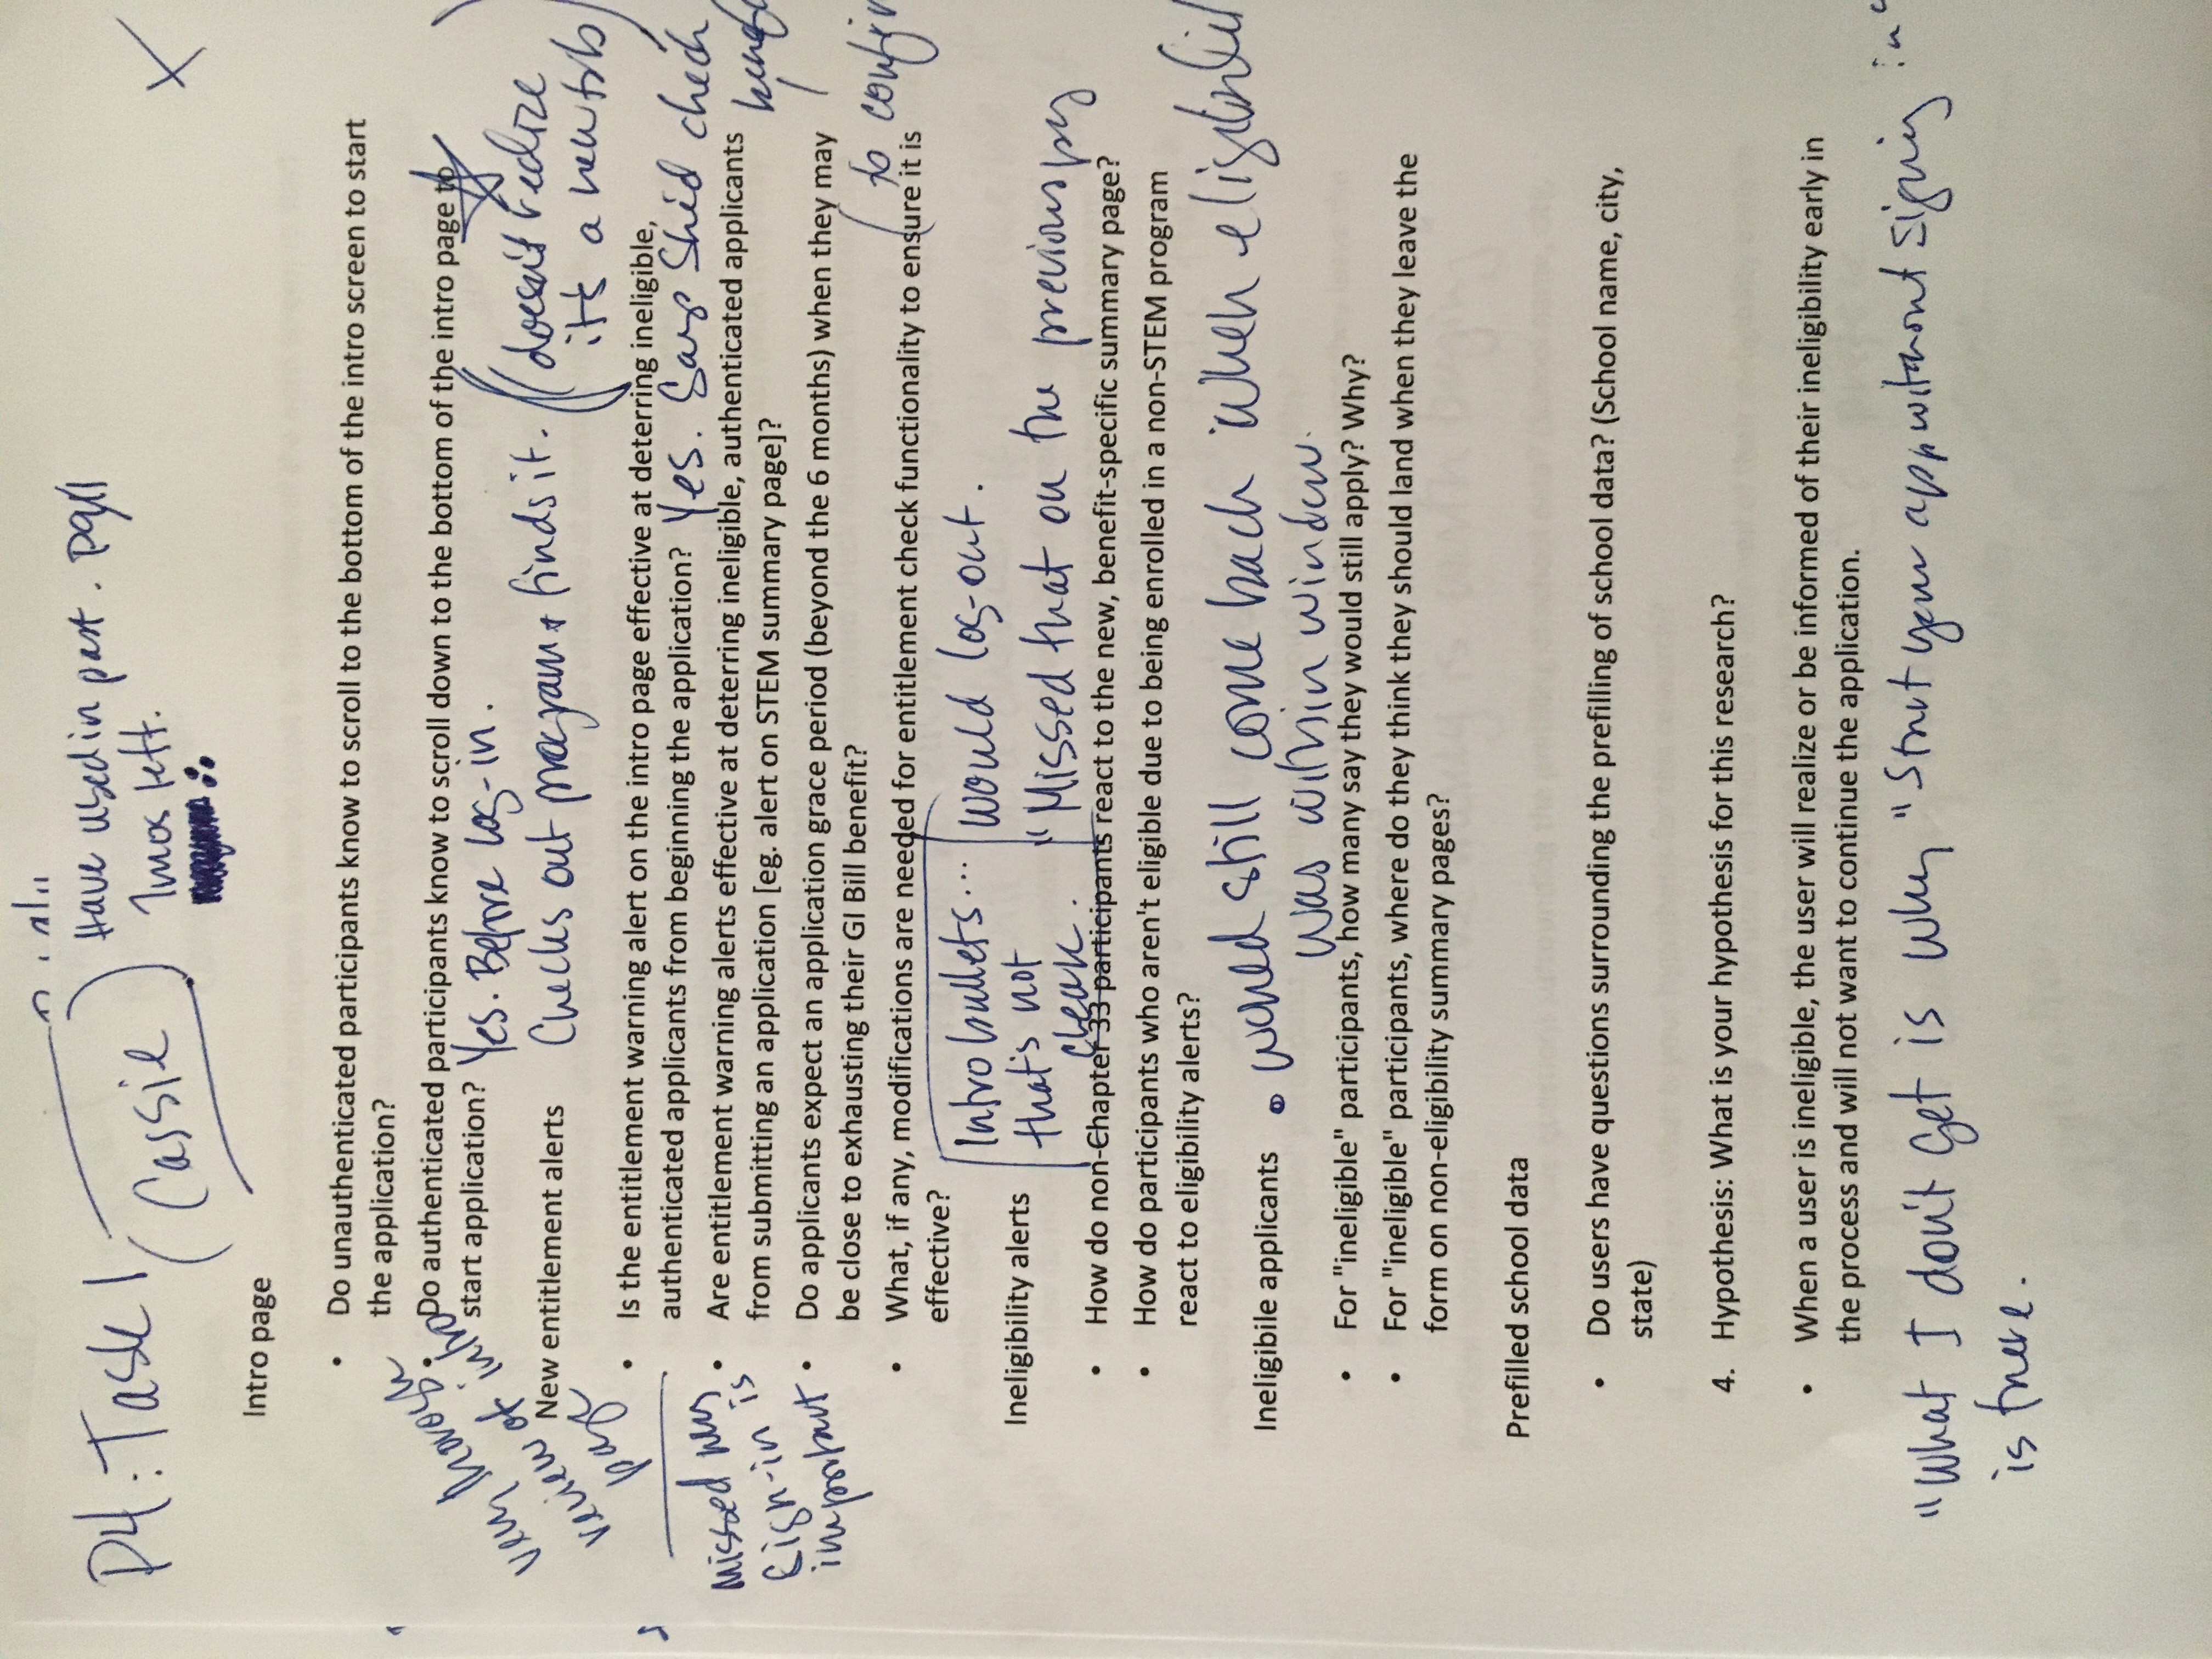 P4: Task 1
(Cassie)
Have used in past. Post 9/11
7 mos left.
Intro page
• Do unauthenticated participants know to scroll to the bottom of the intro screen to start
the application?
• Do authenticated participants know to scroll down to the bottom of the intro page to
start application? Yes. Before log-in.
Checks out program + finds it. (doesn't realize
it's a new tab)
New entitlement alerts
• Is the entitlement warning alert on the intro page effective at deterring ineligible,
authenticated applicants from beginning the application? Yes. Says she'd check
• Are entitlement warning alerts effective at deterring ineligible, authenticated applicants
from submitting an application [eg. alert on STEM summary page]?
• Do applicants expect an application grace period (beyond the 6 months) when they may
be close to exhausting their GI Bill benefit?
to confirm
• What, if any, modifications are needed for entitlement check functionality to ensure it is
effective?
Missed why
sign-in is
important
Intro bullets...
that's not
clear.
would log-out.
"Missed that on the previous pg
Ineligibility alerts
• How do non-Chapter 33 participants react to the new, benefit-specific summary page?
• How do participants who aren't eligible due to being enrolled in a non-STEM program
react to eligibility alerts?
Ineligibile applicants
• would still come back when
was within window.
• For "ineligible" participants, how many say they would still apply? Why?
• For "ineligible" participants, where do they think they should land when they leave the
form on non-eligibility summary pages?
Prefilled school data
• Do users have questions surrounding the prefilling of school data? (School name, city,
state)
4. Hypothesis: What is your hypothesis for this research?
• When a user is ineligible, the user will realize or be informed of their ineligibility early in
the process and will not want to continue the application.
"What I don't get is why "start your app without signing in"
is there.